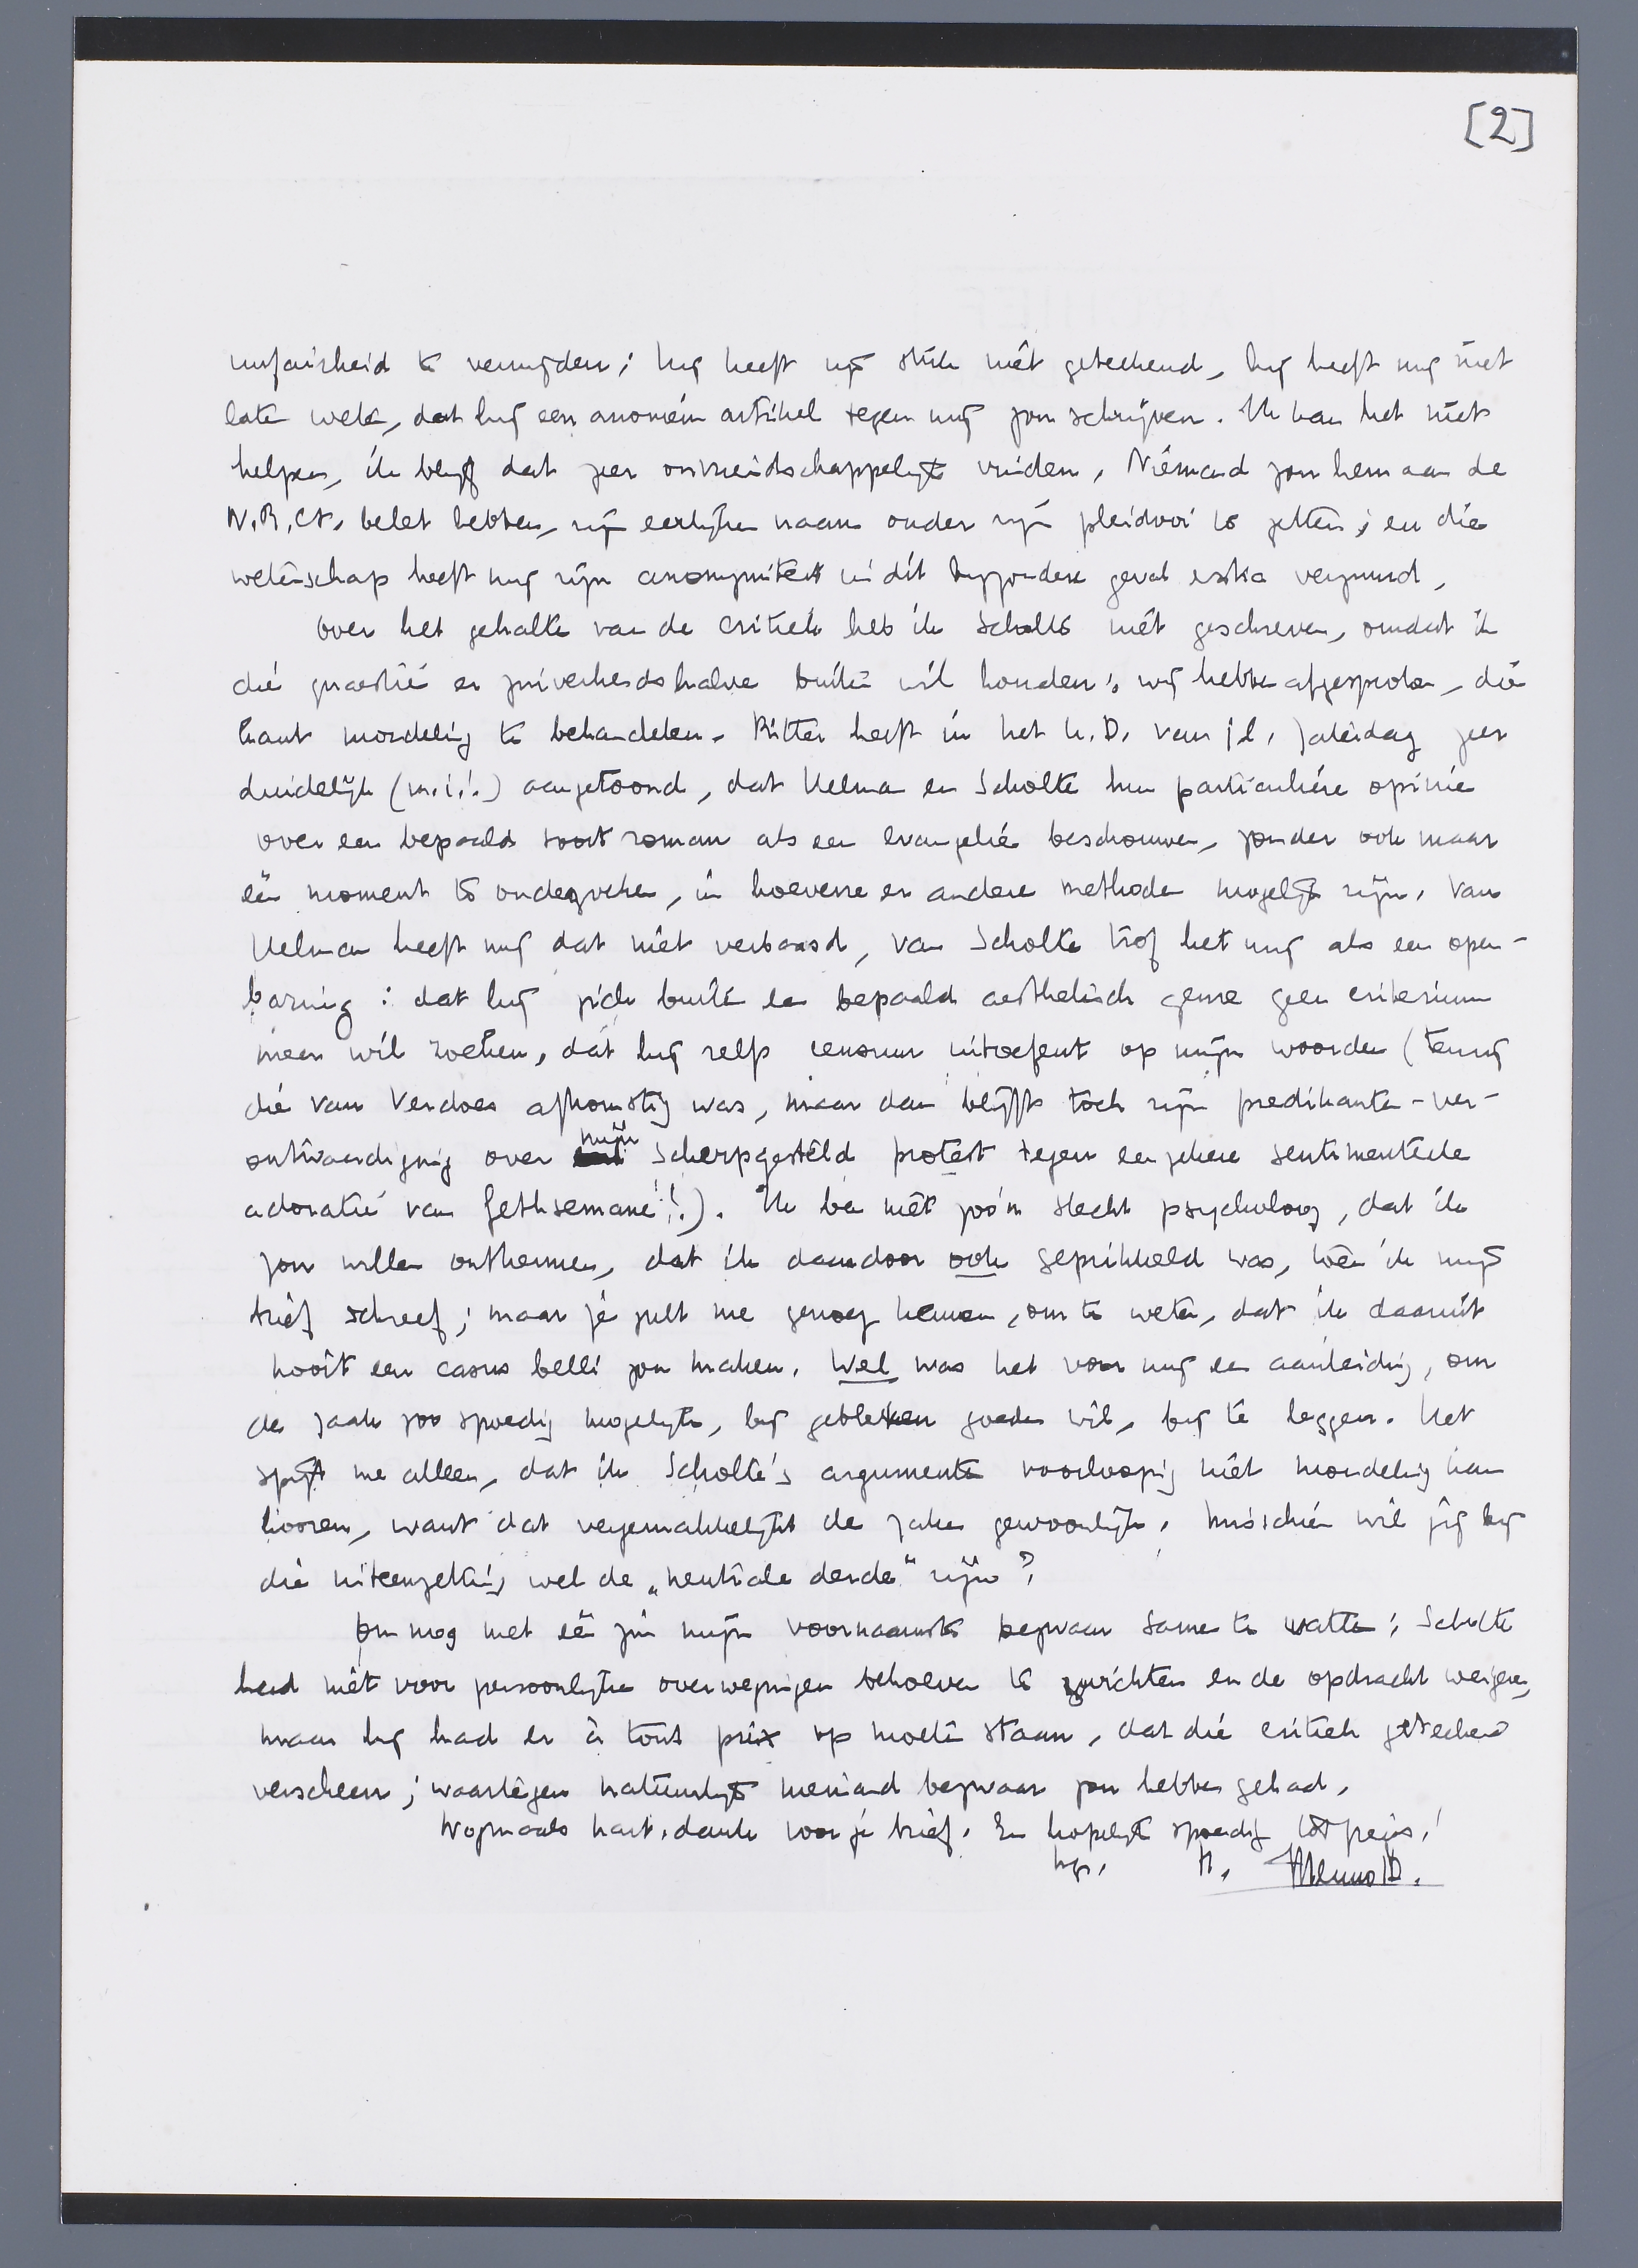 [2]
unfairheid te vermijden; hij heeft zijn stuk niet geteekend, hij heeft mij niet
laten weten, dat hij een anoniem artikel tegen mij zou schrijven. Ik kan het niet
helpen, ik blijf dat zeer onvriendschappelijk vinden. Niemand zou hem aan de
N.R.Ct. belet hebben, zijn eerlijken naam onder zijn pleidooi te zetten; en die
wetenschap heeft mij zijn anonymiteit in dit bijzondere geval extra vergramd.
Over het gehalte van de critiek heb ik Scholte niet geschreven, omdat ik
die quaestie er zuiverheidshalve buiten wil houden; wij hebben afgesproken, die
kant mondeling te behandelen. Ritter heeft in het U.D. van j.l. Zaterdag zeer
duidelijk (m.i.!) aangetoond, dat Helman en Scholte hun particuliere opinie
over een bepaald soort roman als een evangelie beschouwen, zonder ook maar
één moment te onderzoeken, in hoeverre er andere methoden mogelijk zijn. Van
Helman heeft mij dat niet verbaasd, van Scholte trof het mij als een open-
baring: dat hij zich buiten een bepaald aesthetisch genre geen criterium
meer wil zoeken, dat hij zelfs censuur uitoefent op mijn woorden (tenzij
die van Verdoes afkomstig was, maar dan blijft toch zijn predikanten-ver-
ontwaardiging over mijn scherpgesteld protest tegen een zekere sentimenteele
adoratie van Gethsemané!!). Ik ben niet zoo'n slecht psycholoog, dat ik
zou willen ontkennen, dat ik daardoor ook geprikkeld was, toen ik mijn
brief schreef; maar je zult me genoeg kennen, om te weten, dat ik daaruit
nooit een casus belli zou maken. Wel was het voor mij een aanleiding, om
de zaak zoo spoedig mogelijk, bij gebleken goeden wil, bij te leggen. Het
spijt me alleen, dat ik Scholte's argumenten voorloopig niet mondeling kan
hooren, want dat vergemakkelijkt de zaken gewoonlijk. Misschien wil jij bij
die uiteenzetting wel de „neutrale derde" zijn?
Om nog met één zin mijn voornaamste bezwaar samen te vatten: Scholte
had niet voor persoonlijke overwegingen behoeven te zwichten en de opdracht weigeren,
maar hij had er à tout prix op moeten staan, dat die critiek geteekend
verscheen; waartegen natuurlijk niemand bezwaar zou hebben gehad.
Nogmaals hart. dank voor je brief. En hopelijk spoedig tot ziens!
Menno t.B.